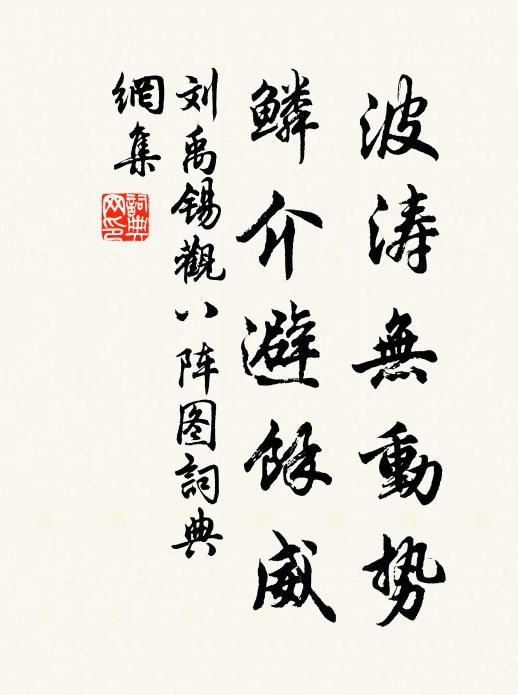 波涛無動势
鱗介避餘威
刘禹锡觀八阵图詞典
網集
詞典
网印